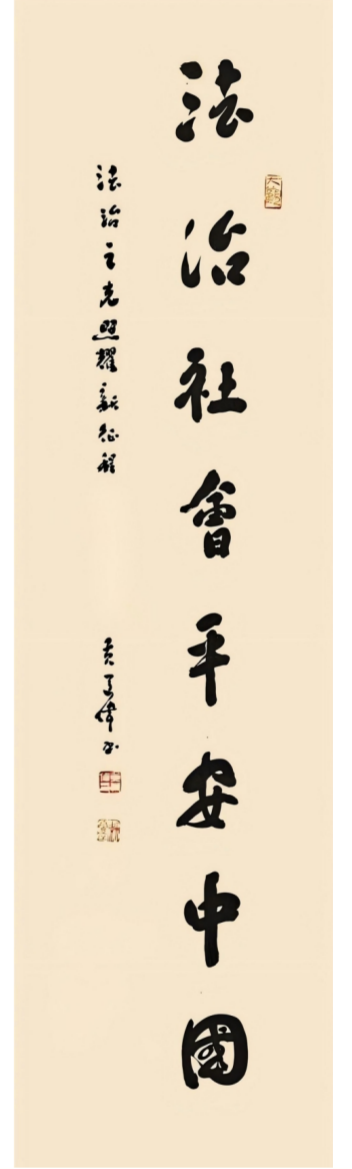 法治社會平安中國
法治之光照耀新征程